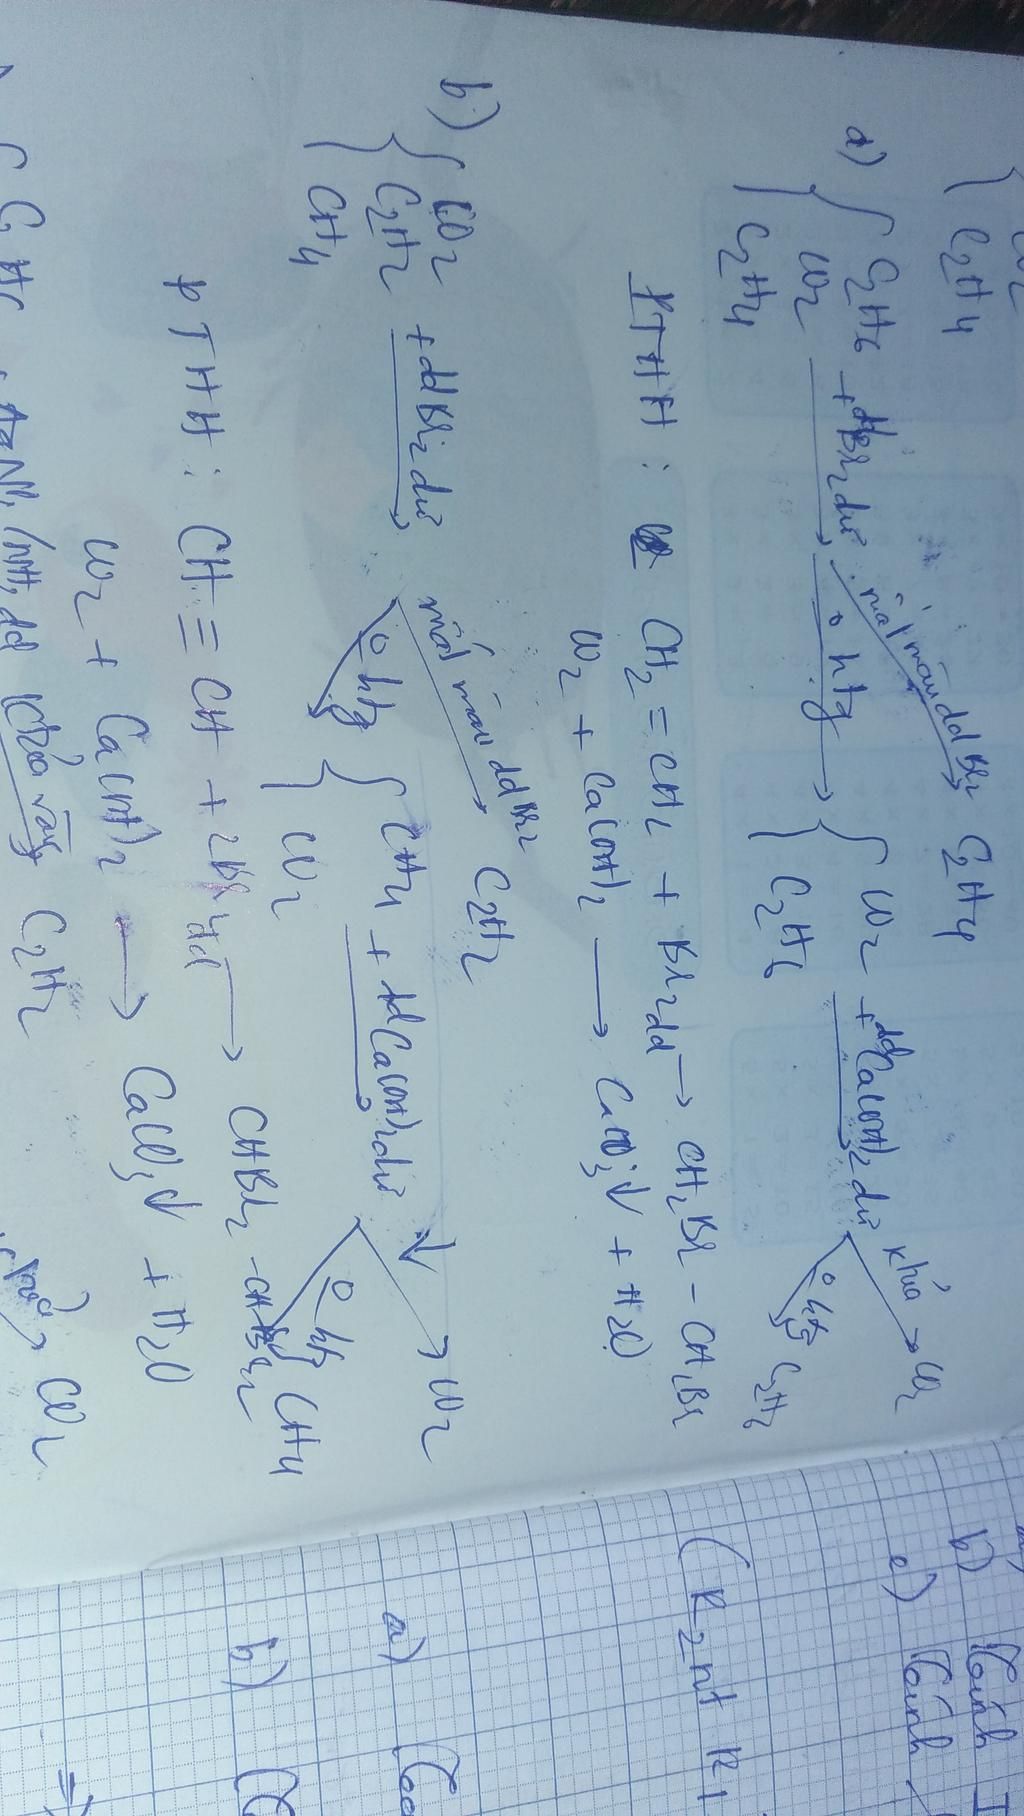 CO2
C2H4
a) C2H6
CO2
C2H4
+ddBr2dư
mất màu ddBr2
C2H4
o htg
CO2
C2H6
+ddCa(OH)2dư
khóa
CO2
o htg
C2H6
PTHH : CH2 = CH2 + Br2dd → CH2Br - CH2Br
CO2 + Ca(OH)2 → CaCO3↓ + H2O
b) CO2
C2H2
CH4
+ddBr2dư
mất màu ddBr2
C2H2
o htg
CH4
CO2
+ddCa(OH)2dư
↓
CO2
o htg
CH4
PTHH : CH ≡ CH + 2Br2dd → CHBr2 - CHBr2
CO2 + Ca(OH)2 → CaCO3↓ + H2O
C2H2
CO2
b)
c)
(R2nt R1
a)
b)